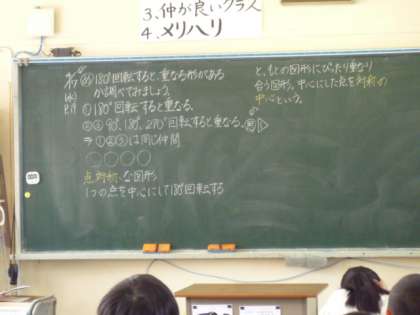 3.仲が良いクラス
4.メリハリ
180°回転すると、重なる形がある
か調べてみましょう。
① 180°回転すると重なる。
②③ 90°、180°、270°回転すると重なる。
⇒①②③は同じ仲間
○○○○
点対称な図形
1つの点を中心にして180°回転する
と、もとの図形にぴったり重なり
合う図形。中心にした点を対称の
中心という。